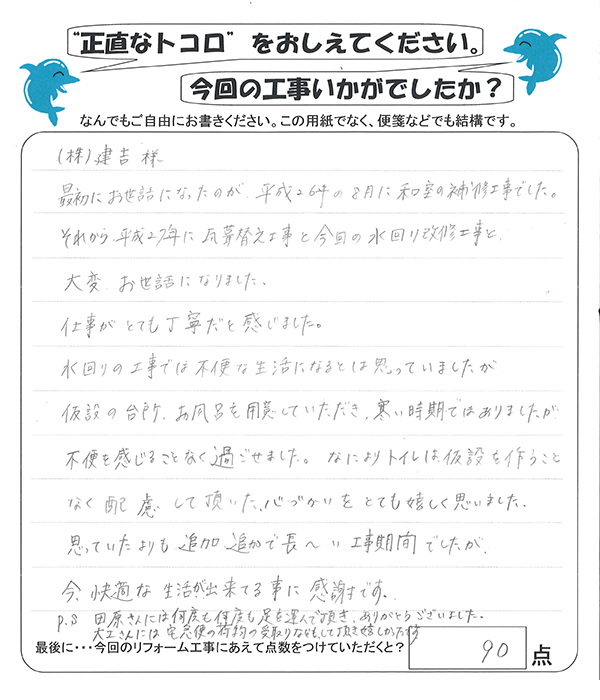 “正直なトコロ”をおしえてください。
今回の工事いかがでしたか？
なんでもご自由にお書きください。この用紙でなく、便箋などでも結構です。
(株)建吉様
最初にお世話になったのが、平成26年の8月に和室の補修工事でした。
それから平成27年に瓦葺替え工事と今回の水回り改修工事と、
大変、お世話になりました、
仕事がとても丁寧だと感じました。
水回りの工事では不便な生活になるとは思っていましたが
仮設の台所、お風呂を用意していただき、寒い時期ではありましたが
不便を感じることなく過ごせました。なによりトイレは仮設を作うこと
なく配慮して頂いた、心づかいをとても嬉しく思いました、
思っていたよりも追加追加で長〜い工事期間でしたが、
今、快適な生活が出来てる事に感謝です。
p.s 田原さんには何度も何度も足を運んで頂き、ありがとうございました。
大工さんには宅急便の荷物の受取りなどもして頂き嬉しかったです
最後に・・・今回のリフォーム工事にあえて点数をつけていただくと？ 90 点